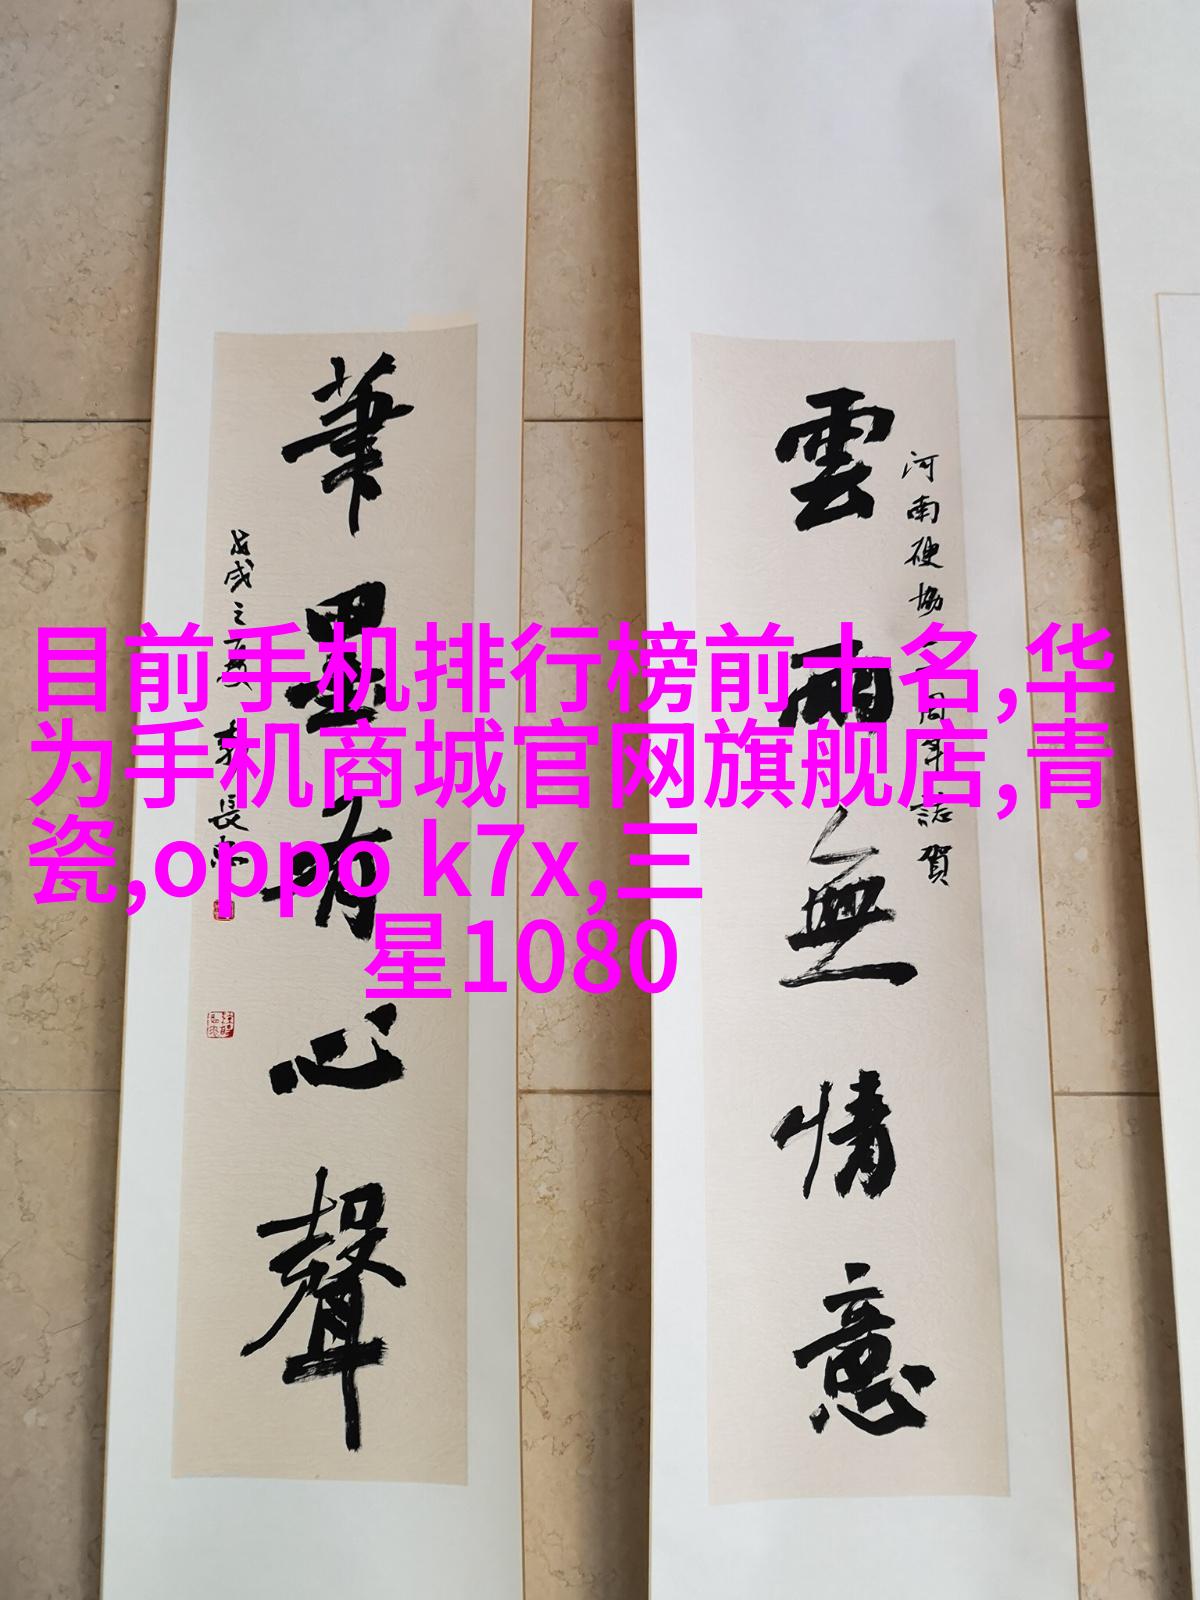 雲雨無情意
河南硬協
周年誌賀
筆墨有心聲
戊戌之夏
長
目前手机排行榜前十名,华
为手机商城官网旗舰店,青
瓷,oppo k7x,三
星1080